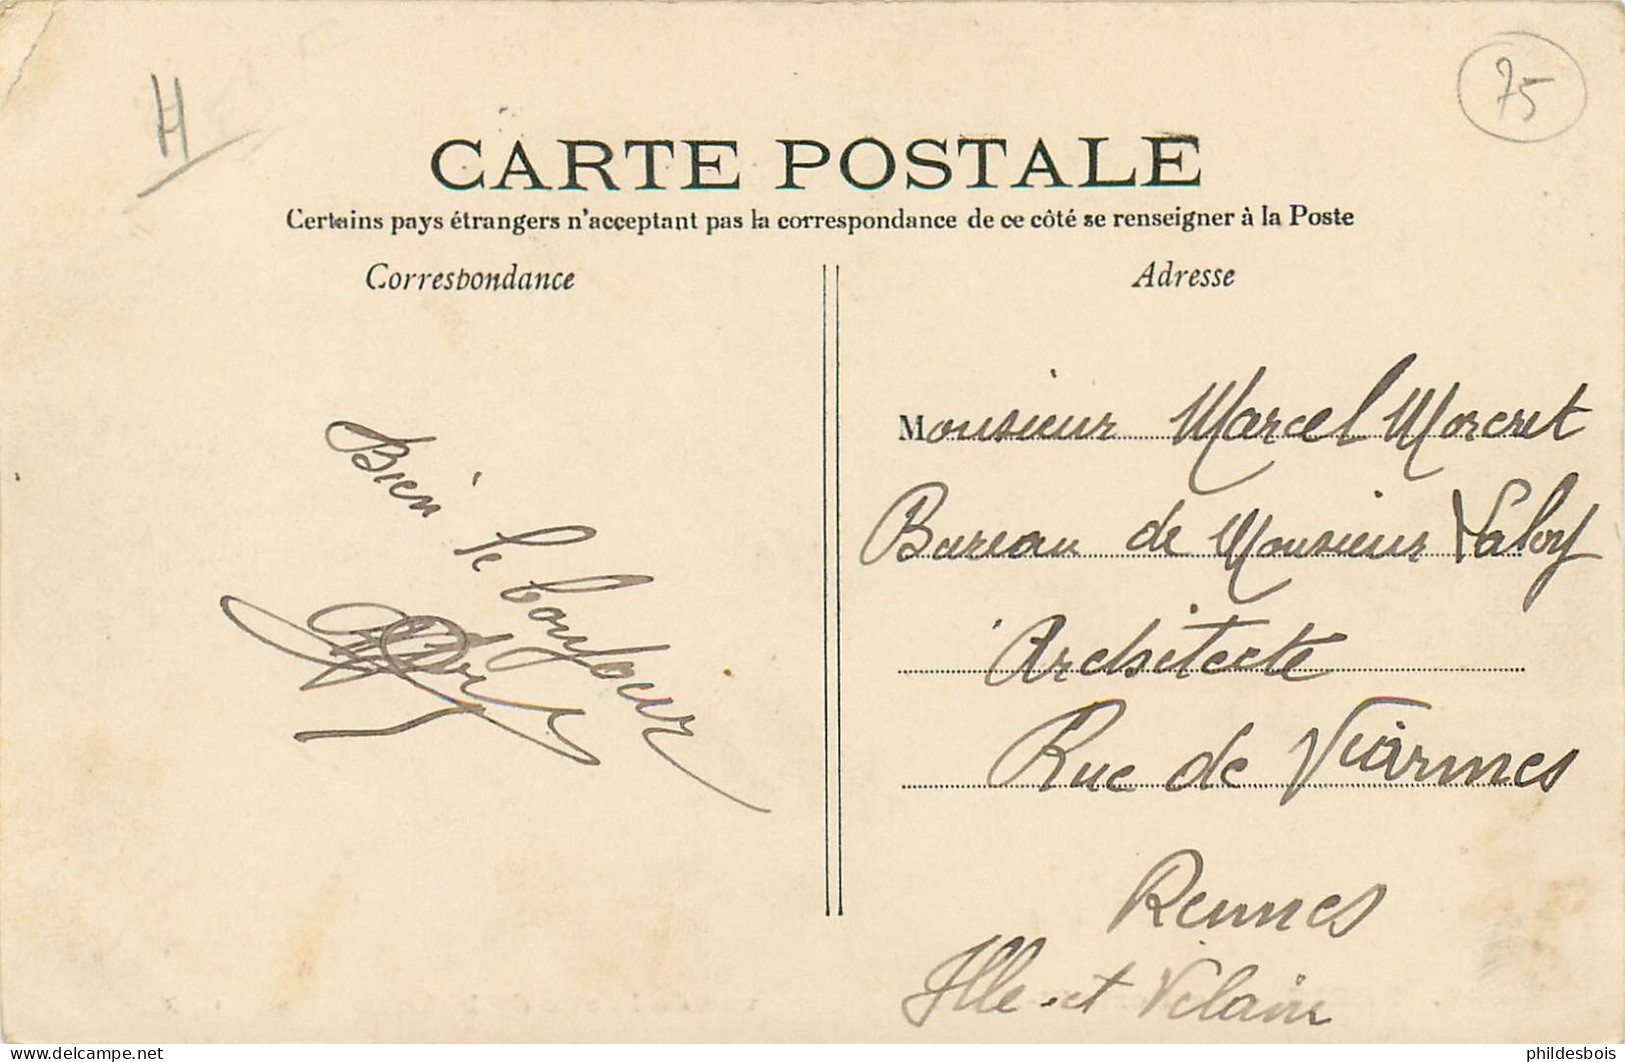 H
75
CARTE POSTALE
Certains pays étrangers n'acceptant pas la correspondance de ce côté se renseigner à la Poste
Correspondance
Bien le bonjour
Adresse
Monsieur Marcel Morcret
Bureau de Monsieur Laloy
Architecte
Rue de Viarmes
Rennes
Ille et Vilaine
phildesbois